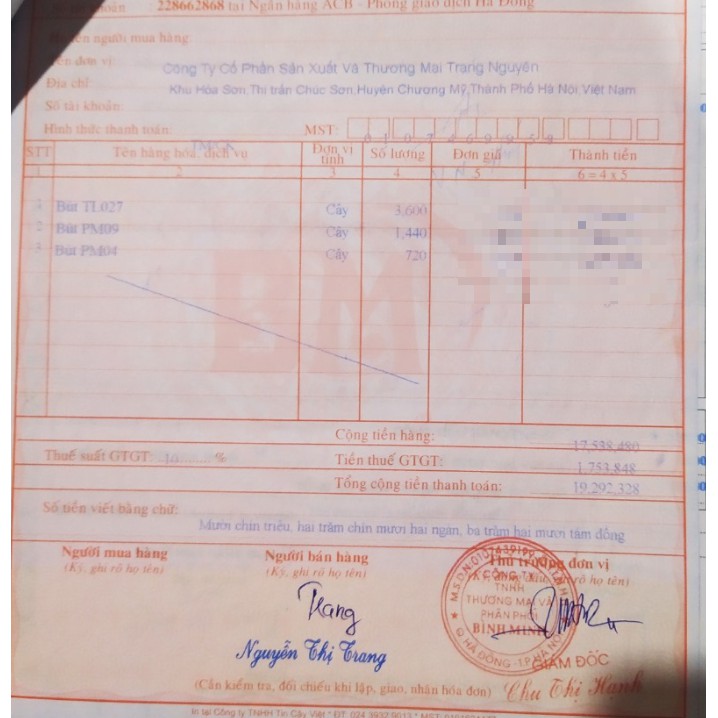 228662868 tại Ngân hàng ACB - Phòng giao dịch Hà Đông
tên người mua hàng:
Tên đơn vị
Công Ty Cổ Phần Sản Xuất Và Thương Mại Trạng Nguyên
Địa chỉ:
Khu Hòa Sơn,Thị trấn Chúc Sơn,Huyện Chương Mỹ,Thành Phố Hà Nội,Việt Nam
Số tài khoản:
Hình thức thanh toán: MST:
STT Tên hàng hóa, dịch vụ Đơn vị tính Số lượng Đơn giá Thành tiền
1 2 3 4 5 6 = 4 x 5
1 Bút TL027 Cây 3,600
2 Bút PM09 Cây 1,440
3 Bút PM04 Cây 720
BM
Cộng tiền hàng: 17,538,480
Thuế suất GTGT: 10 % Tiền thuế GTGT: 1,753,848
Tổng cộng tiền thanh toán: 19,292,328
Số tiền viết bằng chữ:
Mười chín triệu, hai trăm chín mươi hai ngàn, ba trăm hai mươi tám đồng
Người mua hàng Người bán hàng Thủ trưởng đơn vị
(Ký, ghi rõ họ tên) (Ký, ghi rõ họ tên) ghi rõ họ tên)
M.S.D.N:0107639199
CÔNG TY
TNHH
THƯƠNG MẠI VÀ
PHÂN PHỐI
BÌNH MINH
Q.HÀ ĐÔNG - T.P HÀ NỘI
Trang
Nguyễn Thị Trang
GIÁM ĐỐC
(Cần kiểm tra, đối chiếu khi lập, giao, nhận hóa đơn) Chu Thị Hạnh
In tại Công ty TNHH Tin Cậy Việt * ĐT: 024 3932 9013 * MST: